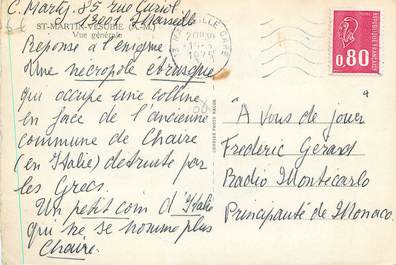 C. Marty. 85 rue Curiol.
13001 Marseille
ST-MARTIN-VESUBIE (A.-M.)
Vue générale
Réponse à l'énigme
Une nécropole étrusque
qui occupe une colline
en face de l'ancienne
commune de Chaire
(en Italie) détruite par
les Grecs.
Un petit coin d'Italie
qui ne se nomme plus
Chaire.
20H30
0.80
POSTES
REPUBLIQUE FRANÇAISE
"A vous de jouer"
Frédéric Gérard
Radio Montecarlo
Principauté de Monaco.